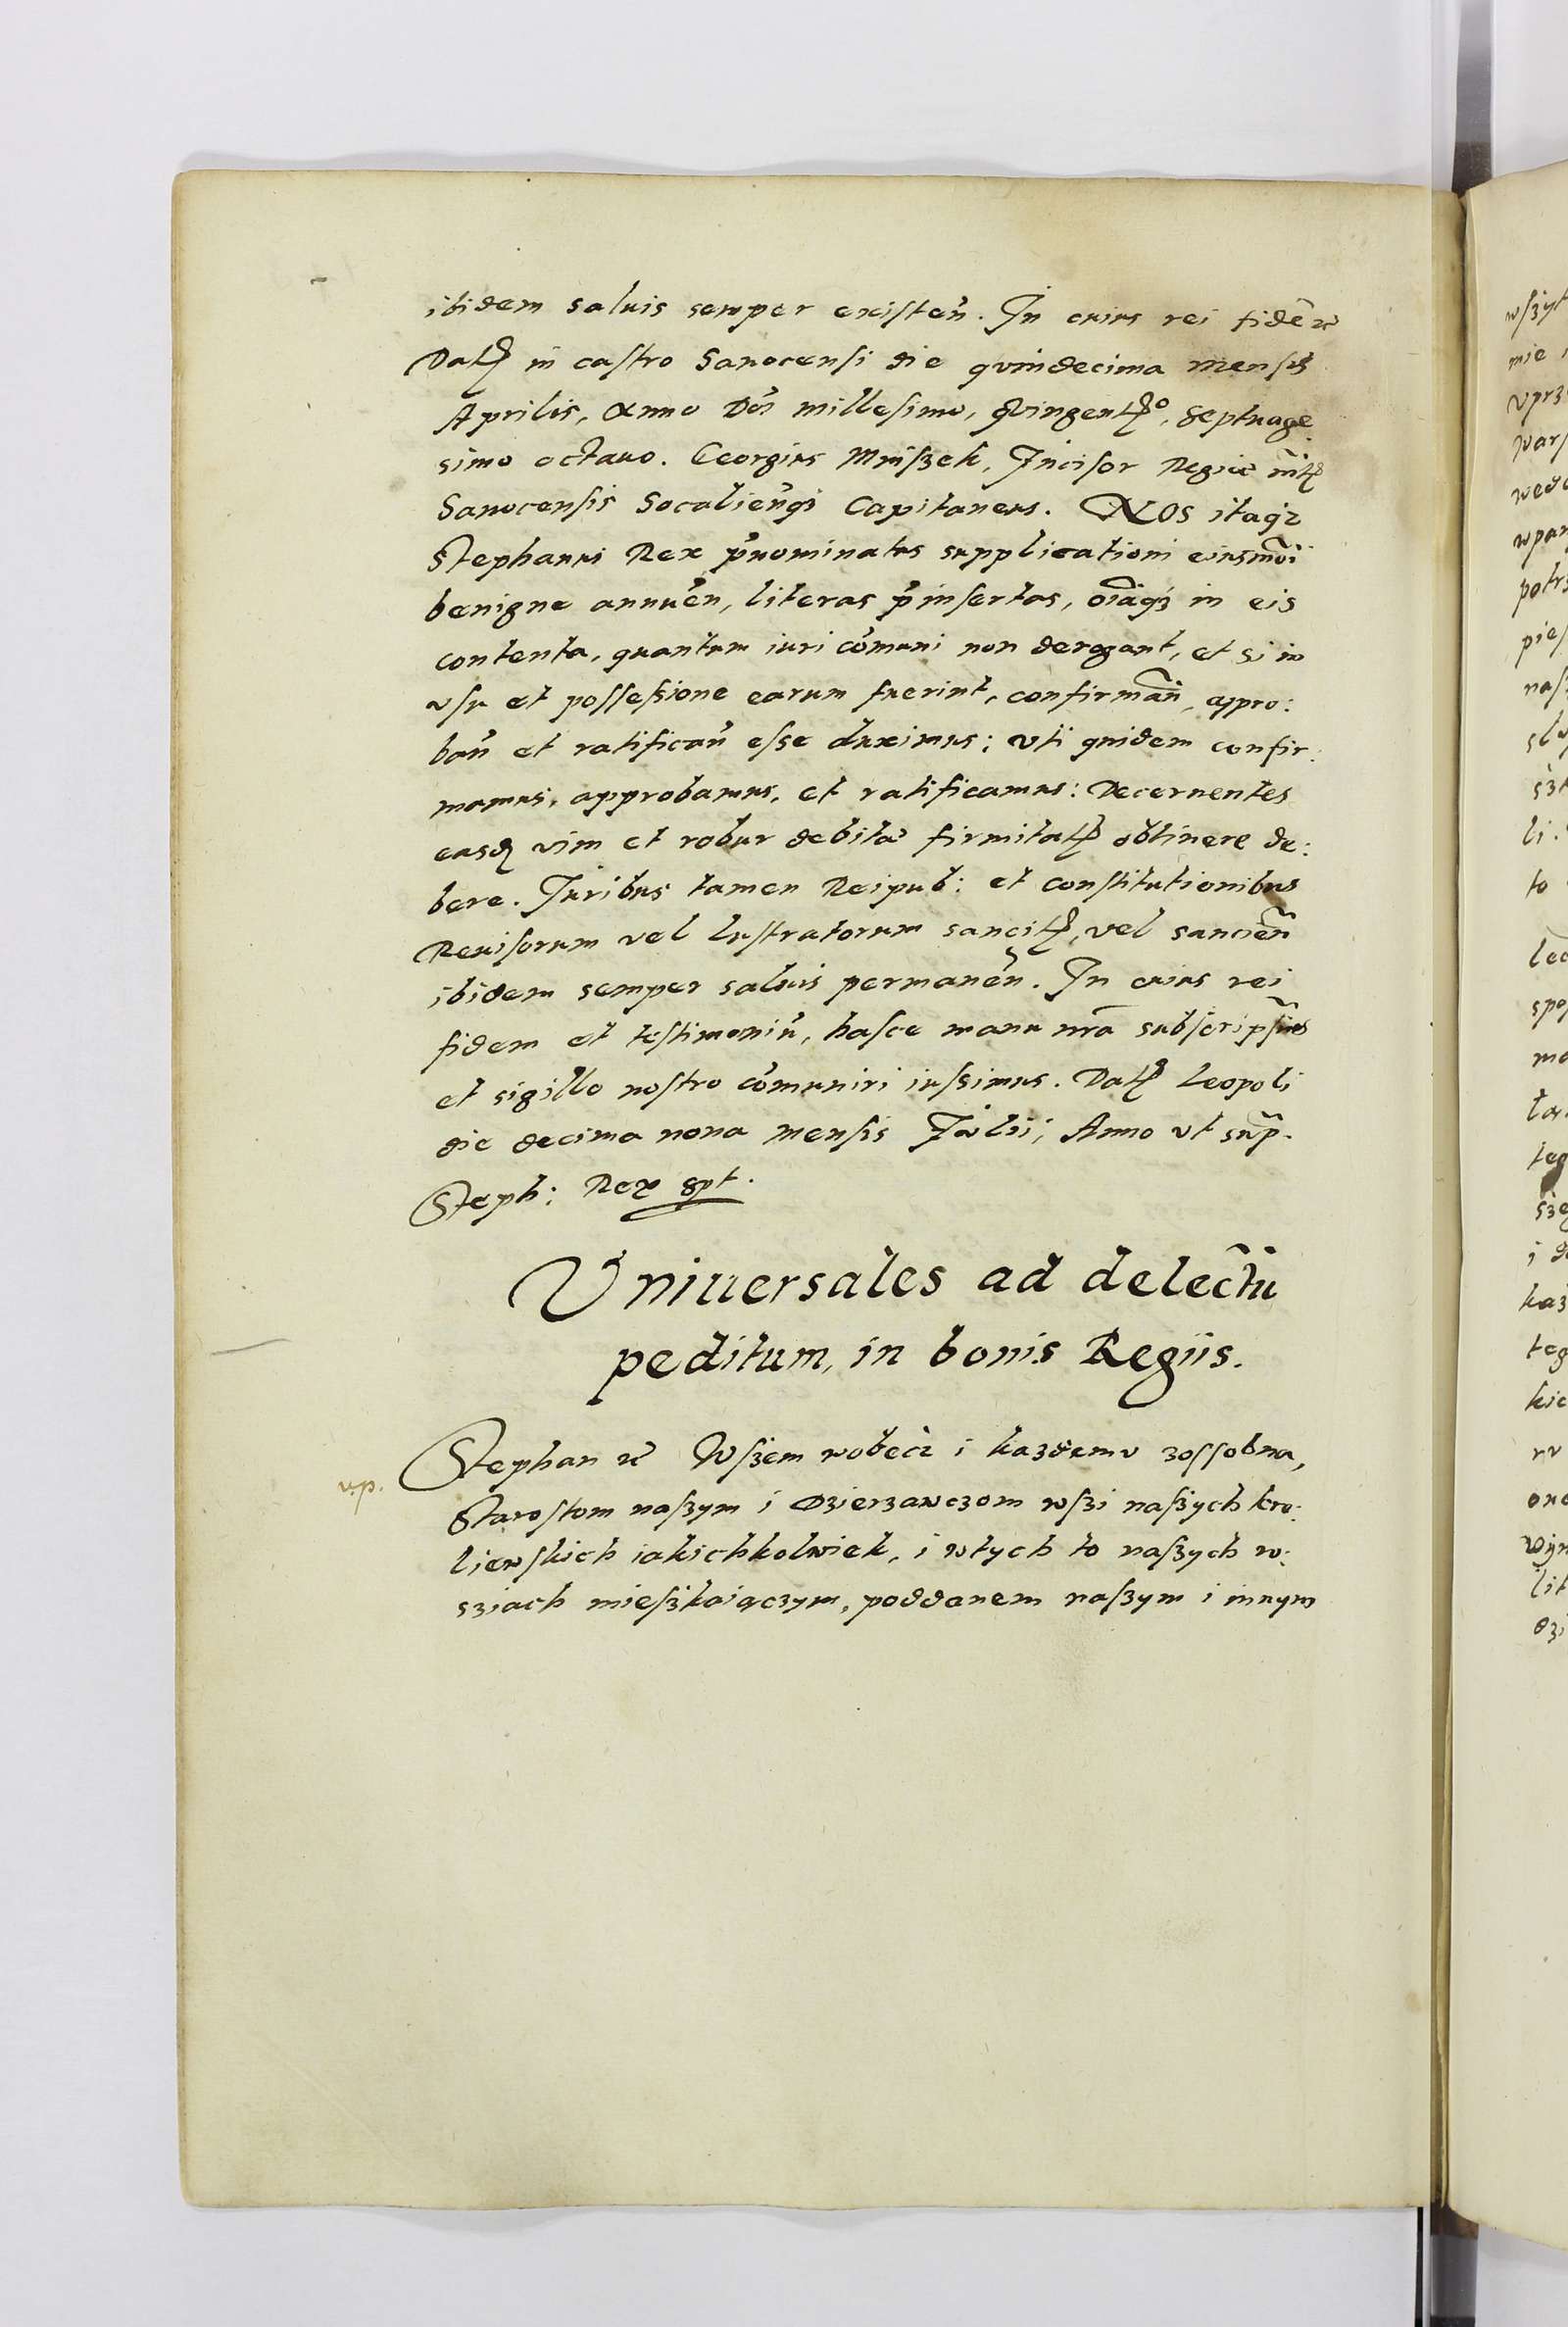 ibidem saluis semper existeñ. In cuius rei fidẽ &
Datꝭ in castro Sanocensi die quindecima mensis
Aprilis, anno Dñi millesimo, quingentꝭo, septuage
simo octauo. Georgius Mniszek, Incisor Regiæ mtꝭ
Sanocensis Socalieñqꝫ Capitaneus. NOS itaqꝫ
Stephanus Rex p̃nominatus supplicationi eiusmõi
benigne annueñ, literas p̃insertas, oĩaqꝫ in eis
contenta, quantum iuri cõmuni non derogant, et si in
vsu et possessione earum fuerint, confirmañ, appro:
bañ et ratificañ esse duximus: vti quidem confir:
mamus, approbamus, et ratificamus: Decernentes
easdꝫ vim et robur debitæ firmitatꝭ obtinere de:
bere. Iuribus tamen Reipub: et constitutionibus
Reuisorum vel lustratorum sancitꝭ, vel sancieñ
ibidem semper saluis permaneñ. In cuius rei
fidem et testimoniũ, hasce manu nrã subscripsim̃us
et sigillo nostro cõmuniri iussimus. Datꝭ Leopoli
die decima nona mensis Iulii, Anno vt sup̃.
Steph: Rex spt.
Vniuersales ad delectũ
peditum, in bonis Regiis.
v.p.
Stephan & Wszem wobecz i kazdemu zossobna,
Starostom naszym i Dzierzawczom wszi naszych kro:
liewskich iakichkolwiek, i wtych to naszych w:
sziach mieszkaiączym, poddanem naszym i innym